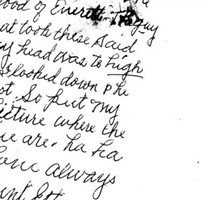 ood of Everett. The guy
at took these said
y head was to high
slooked down & he
st. So put my
icture where the
ue are. ha ha
ove always
unt Dot